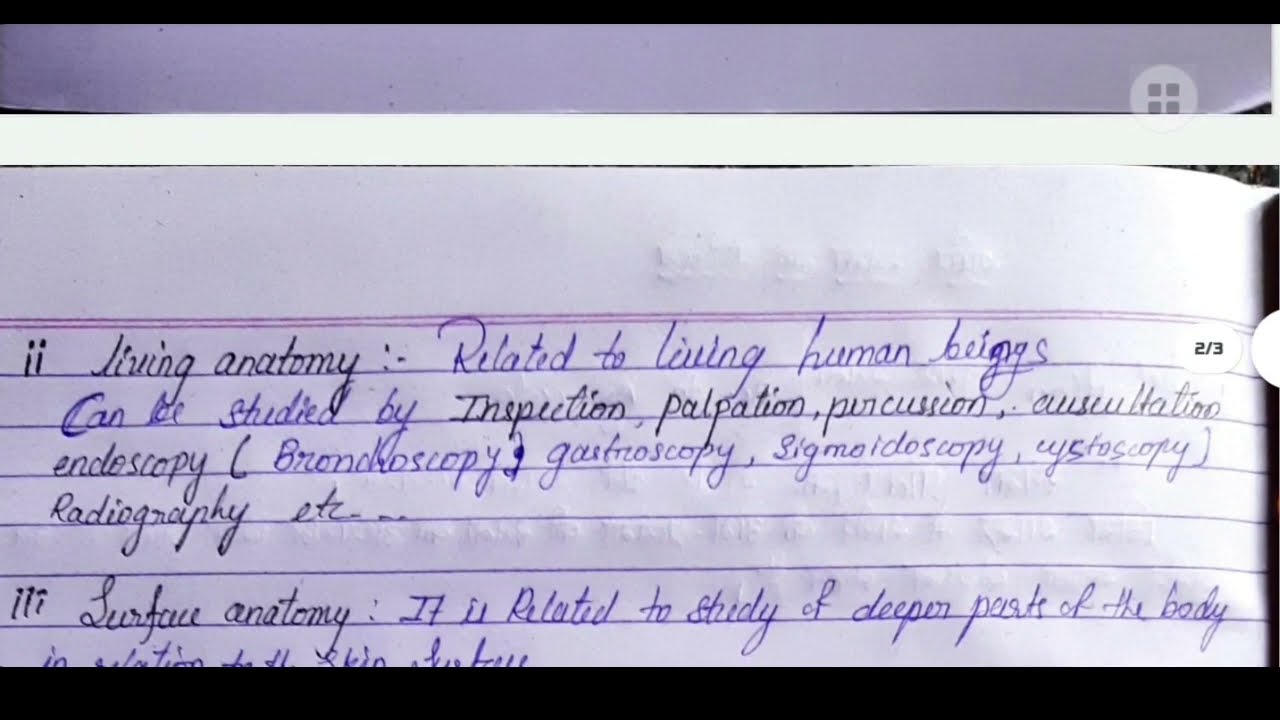 2/3
ii living anatomy :- Related to living human beings
Can be studied by Inspection, palpation, percussion, auscultation
endoscopy ( Bronchoscopy, gastroscopy, Sigmoidoscopy, cystoscopy)
Radiography etc....
iii Surface anatomy : It is Related to study of deeper parts of the body
in relation to the skin surface